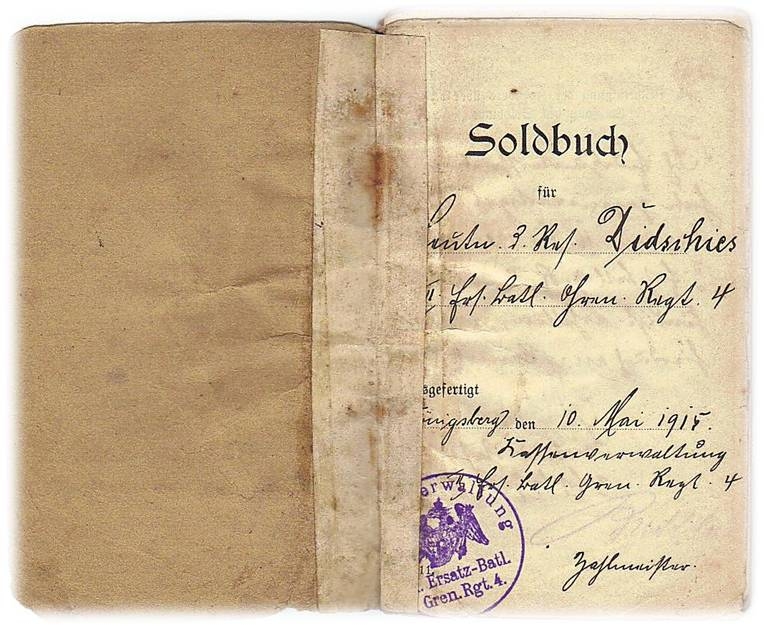 Soldbuch
für
Leutn. d. Res. Didschies
Ers. Batl. Gren. Regt. 4
sgefertigt
önigsberg den 10. Mai 1915.
Kassenverwaltung
Ers. Batl. Gren. Regt. 4
erwaltung
Ersatz-Batl.
Gren. Rgt. 4.
Zahlmeister.